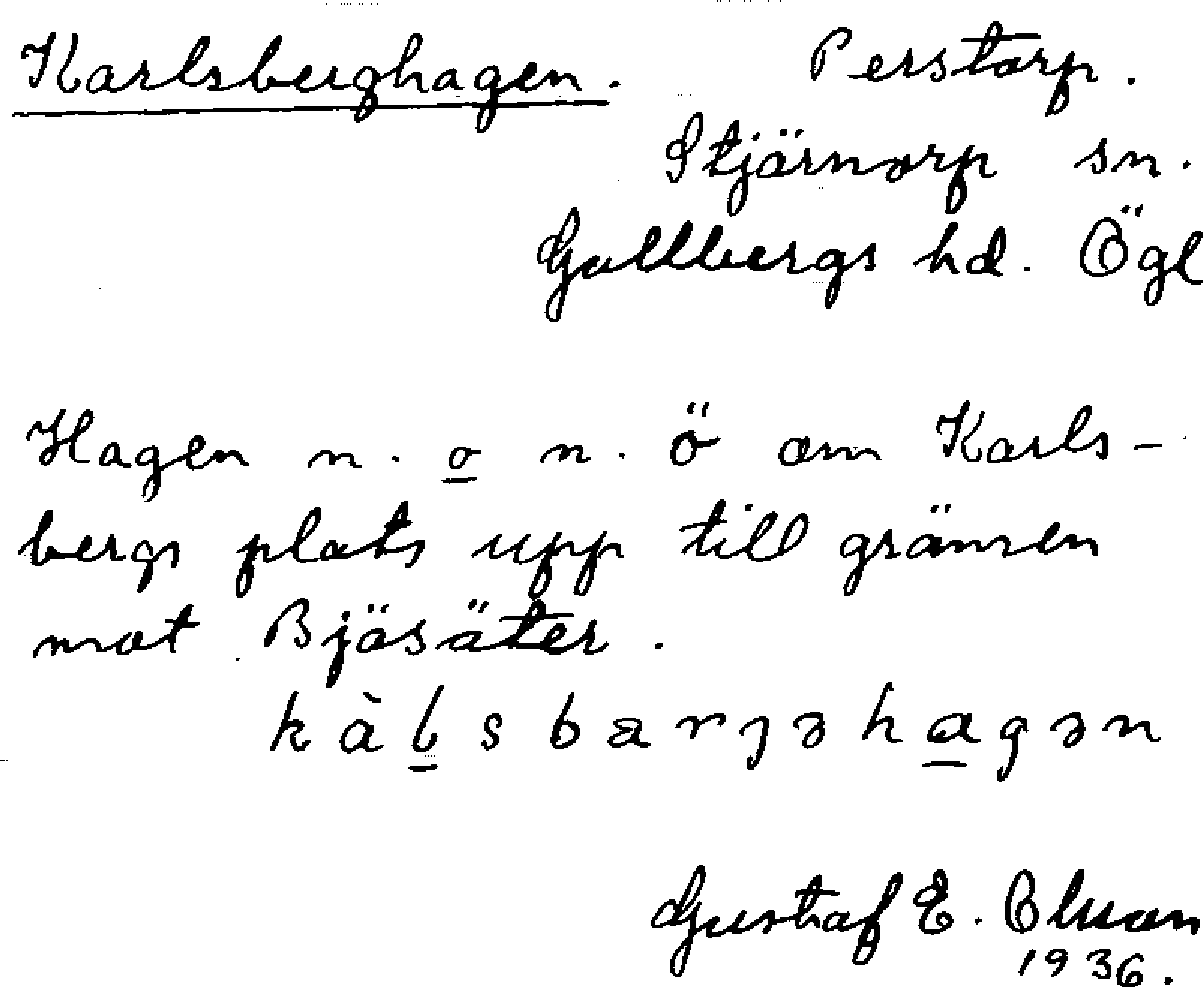 Karlsberghagen. Perstorp.
Stjärnorp sn.
Gullbergs hd. Ögl
Hagen n. o n. ö om Karls-
bergs plats upp till gränsen
mot Bjäsäter.
Gustaf E. Olsson
1936.